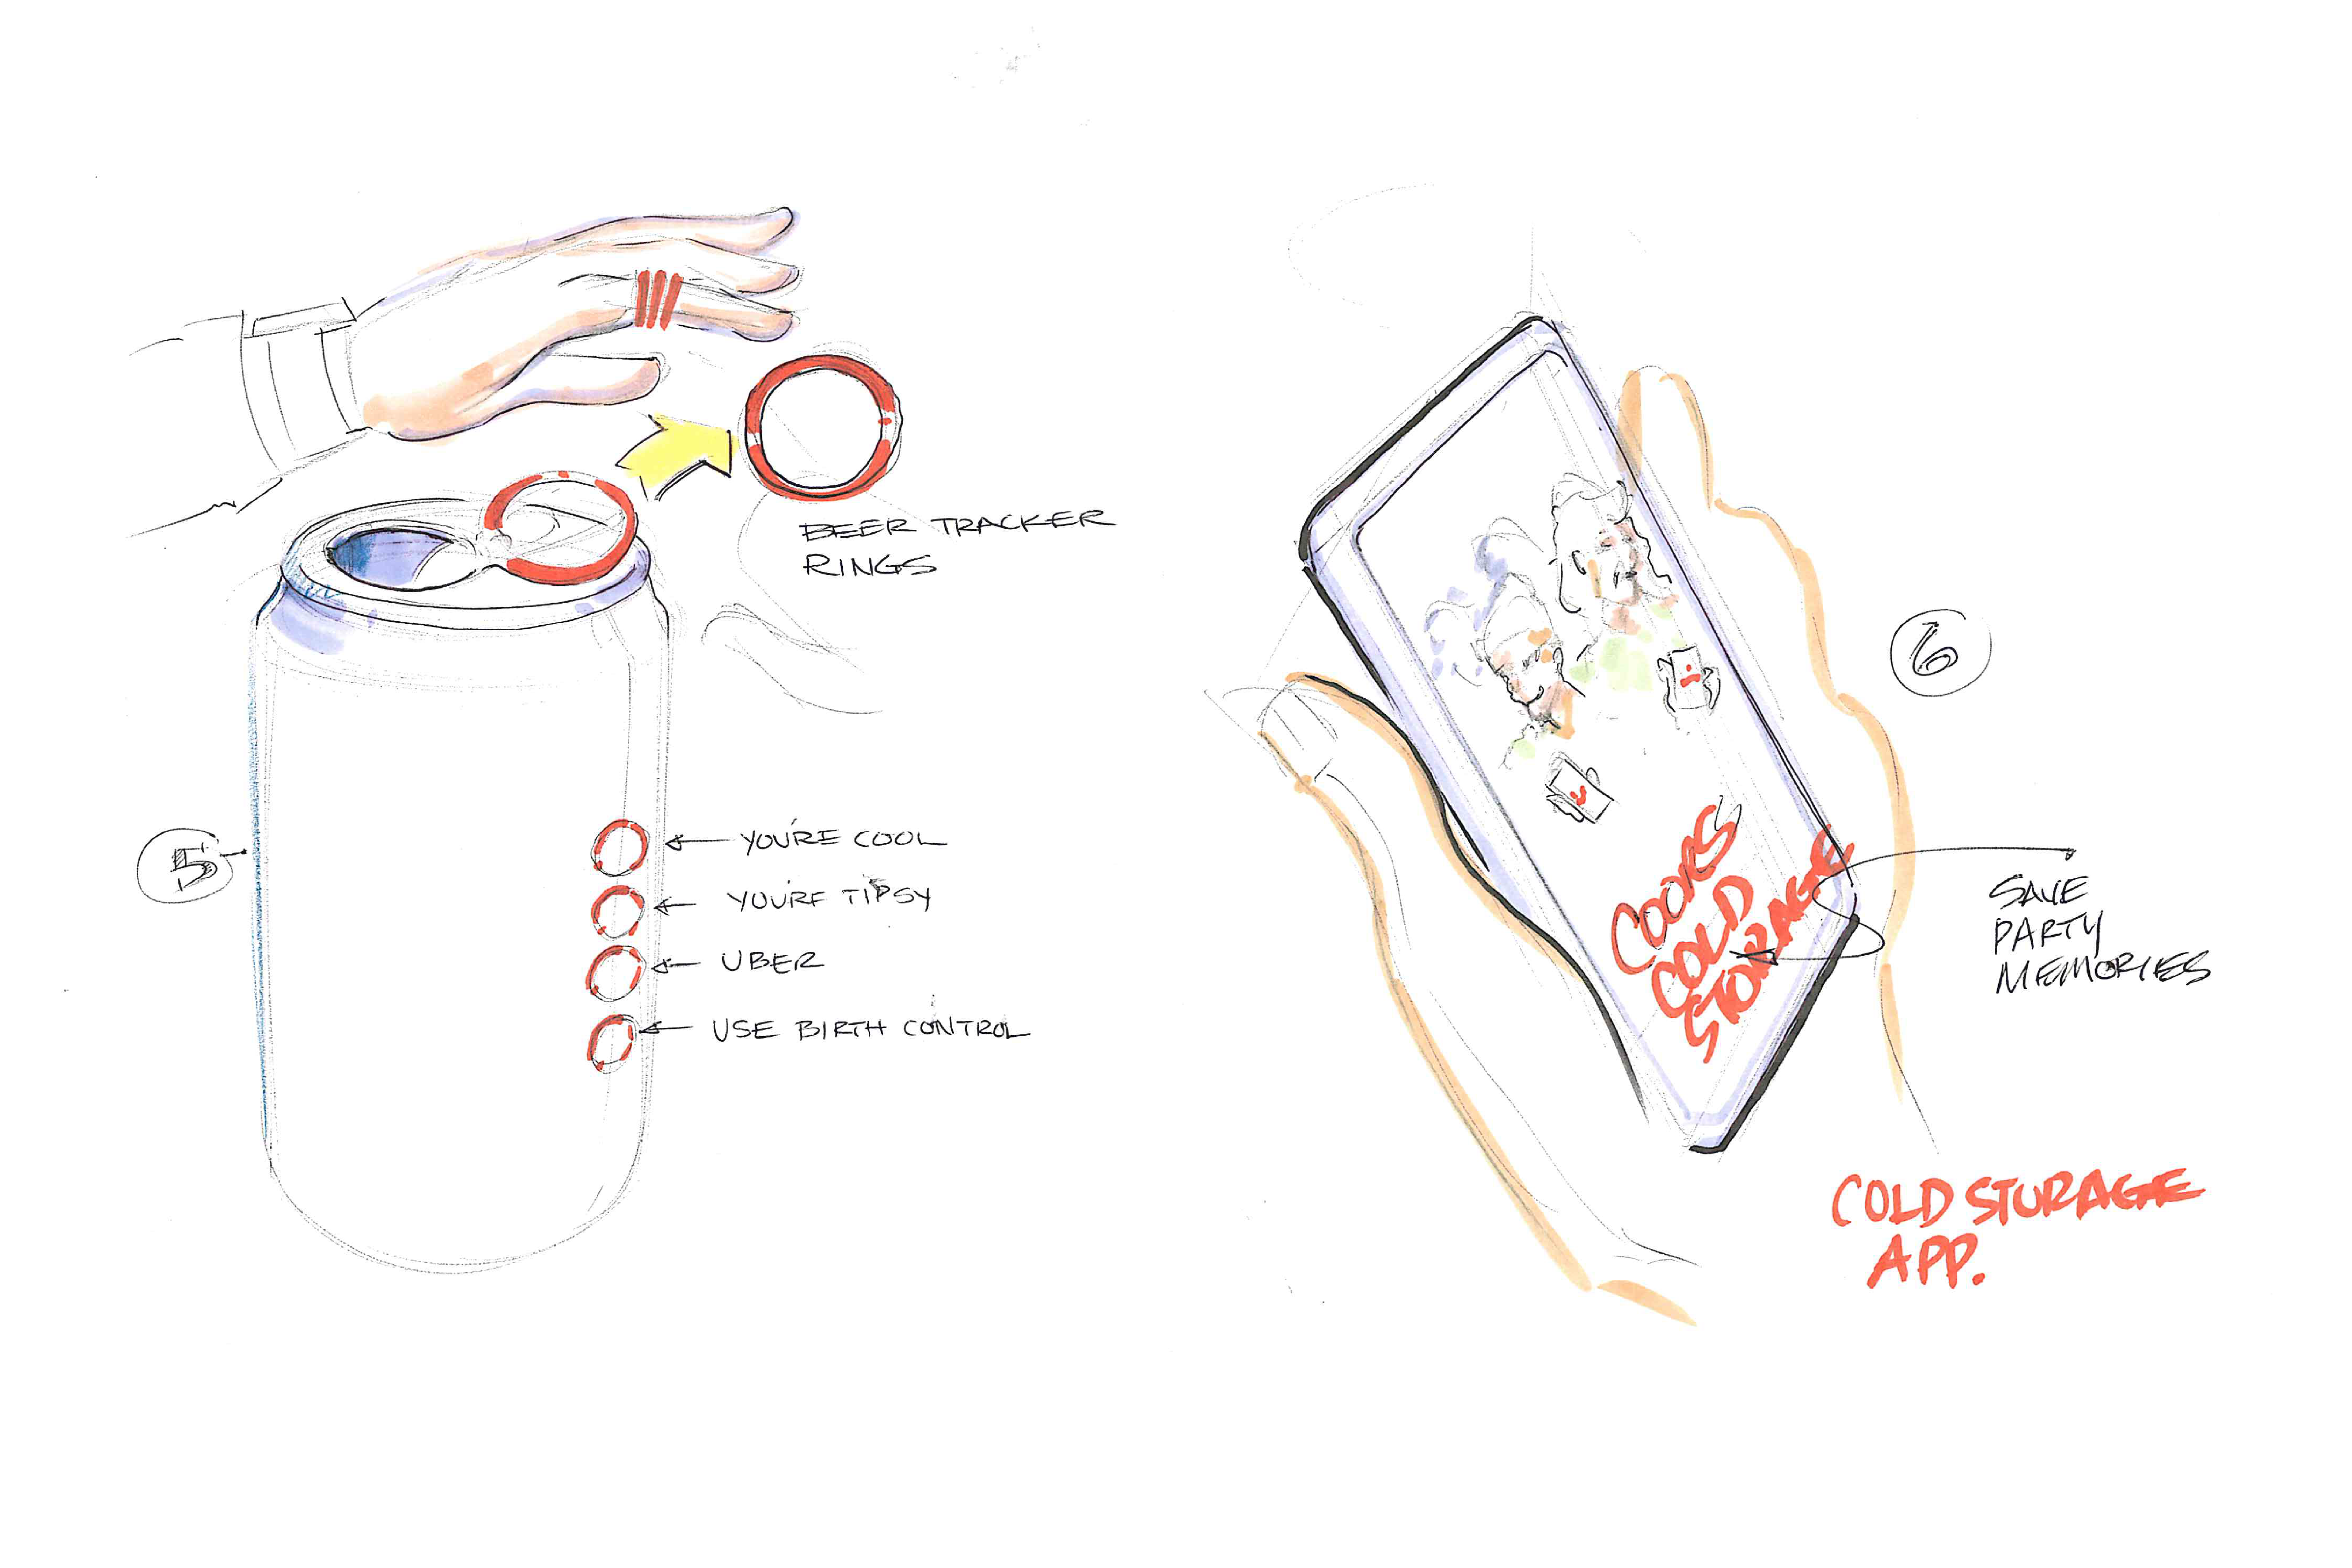 BEER TRACKER
RINGS
5
YOU'RE COOL
YOU'RE TIPSY
UBER
USE BIRTH CONTROL
6
COORS
COLD
STORAGE
SAVE
PARTY
MEMORIES
COLD STORAGE
APP.